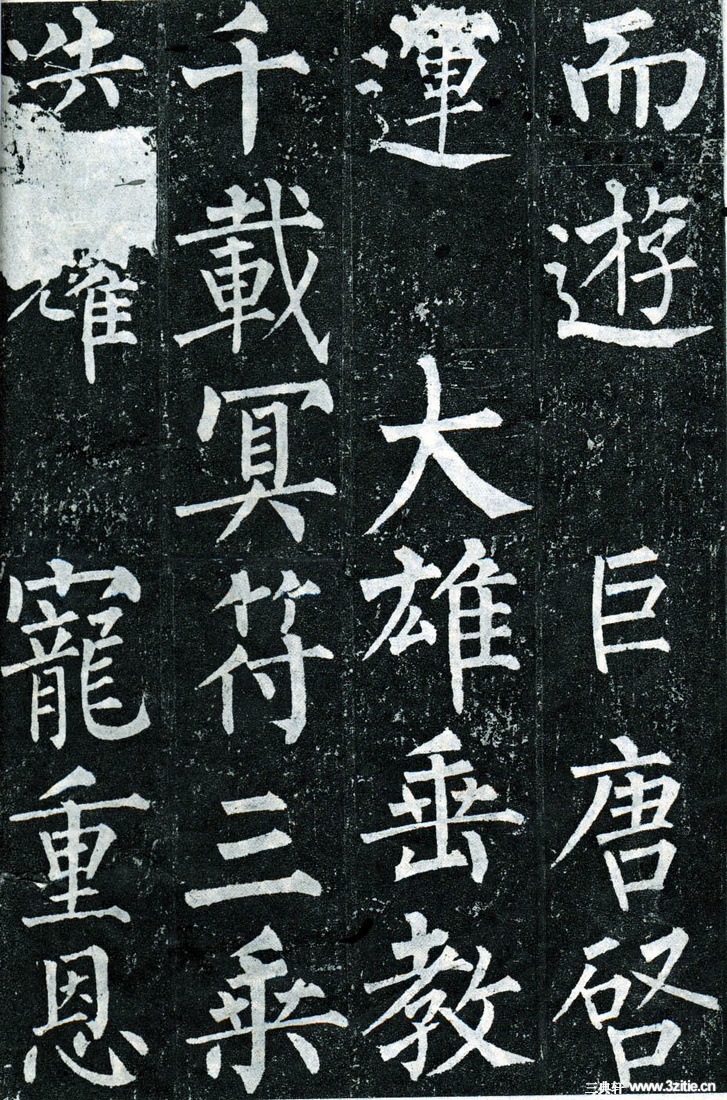 而遊巨唐啓
運大雄垂教
千載冥符三乘
迭耀寵重恩
三典轩 www.3zitie.cn